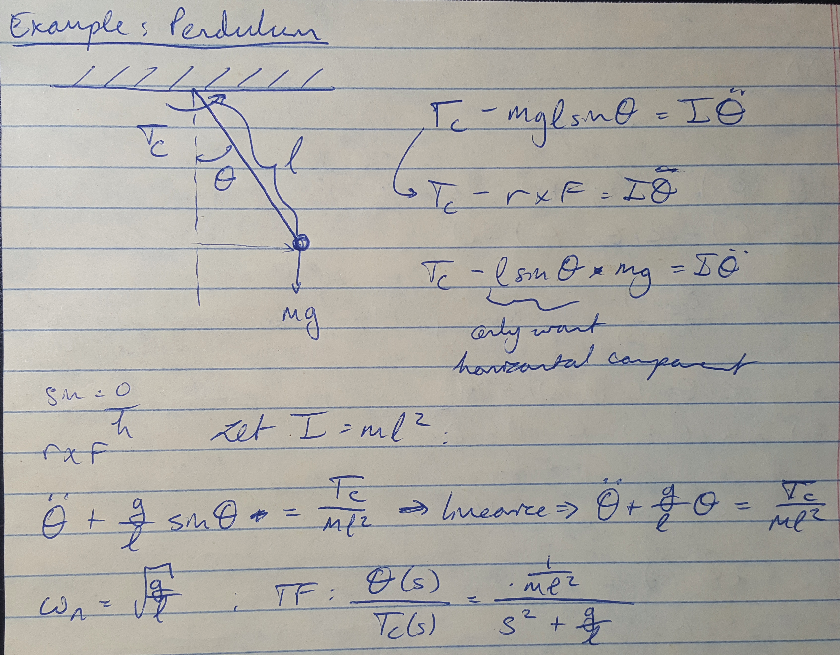 Example: Pendulum
Tc - mglsinθ = Iθ̈
Tc
l
θ
Tc - r x F = Iθ̈
Tc - l sinθ * mg = Iθ̈
mg
only want
horizontal component
sin = o/h
r x F
Let I = ml²:
θ̈ + g/l sinθ = Tc/ml² → linearize ⇒ θ̈ + g/l θ = Tc/ml²
ωn = √(g/l) ; TF: θ(s)/Tc(s) = (1/ml²)/(s² + g/l)